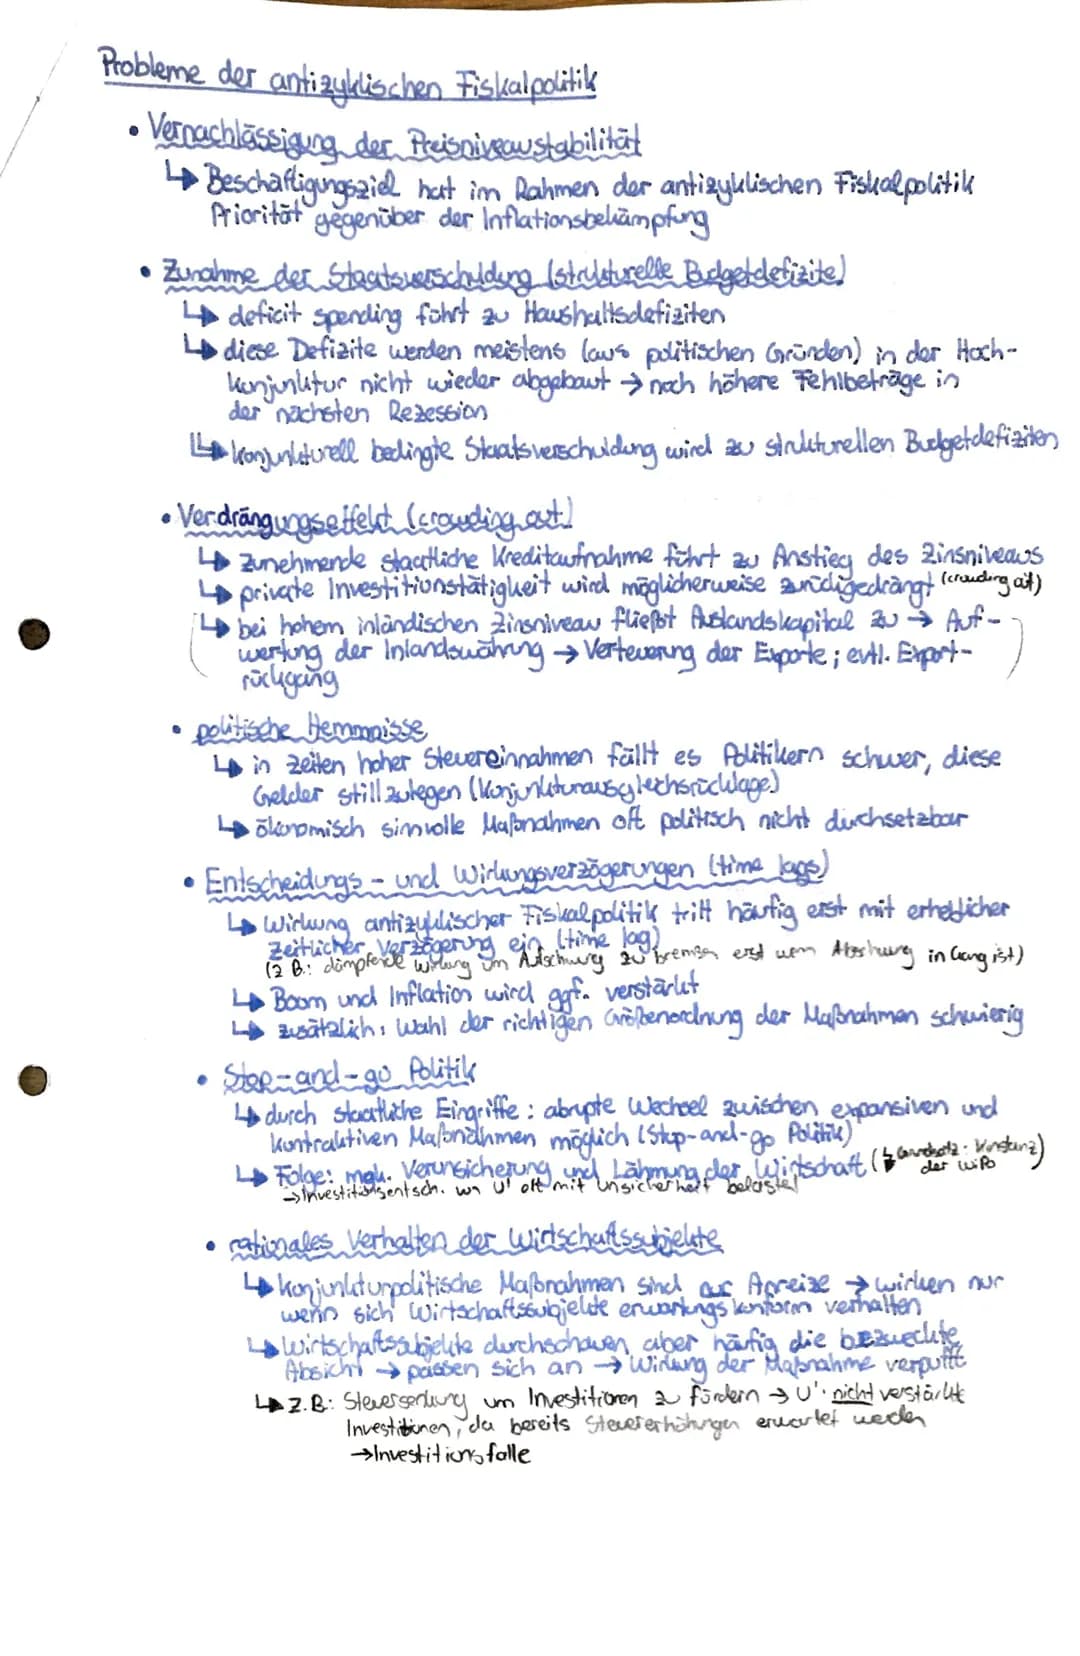 Probleme der antizyklischen Fiskalpolitik
• Vernachlässigung der Preisniveaustabilität
↳ Beschäftigungsziel hat im Rahmen der antizyklischen Fiskalpolitik
Priorität gegenüber der Inflationsbekämpfung
• Zunahme der Staatsverschuldung (strukturelle Budgetdefizite)
↳ deficit spending führt zu Haushaltsdefiziten
↳ diese Defizite werden meistens (aus politischen Gründen) in der Hoch-
konjunktur nicht wieder abgebaut → noch höhere Fehlbeträge in
der nächsten Rezession
↳ konjunkturell bedingte Staatsverschuldung wird zu strukturellen Budgetdefiziten
• Verdrängungseffekt (crowding out)
↳ Zunehmende staatliche Kreditaufnahme führt zu Anstieg des Zinsniveaus
↳ private Investitionstätigkeit wird möglicherweise zurückgedrängt (crowding out)
(↳ bei hohem inländischen Zinsniveau fließt Auslandskapital zu → Auf-
wertung der Inlandswährung → Verteuerung der Exporte; evtl. Export-
rückgang)
• politische Hemmnisse
↳ in Zeiten hoher Steuereinnahmen fällt es Politikern schwer, diese
Gelder stillzulegen (Konjunkturausgleichsrücklage)
↳ ökonomisch sinnvolle Maßnahmen oft politisch nicht durchsetzbar
• Entscheidungs- und Wirkungsverzögerungen (time lags)
↳ Wirkung antizyklischer Fiskalpolitik tritt häufig erst mit erheblicher
zeitlicher Verzögerung ein (time lag)
(z.B.: dämpfende Wirkung um Aufschwung zu bremsen erst wenn Abschwung in Gang ist)
↳ Boom und Inflation wird ggf. verstärkt
↳ zusätzlich: Wahl der richtigen Größenordnung der Maßnahmen schwierig
• Stop-and-go Politik
↳ durch staatliche Eingriffe: abrupte Wechsel zwischen expansiven und
kontraktiven Maßnahmen möglich (Stop-and-go Politik)
↳ Folge: mgl. Verunsicherung und Lähmung der Wirtschaft (↳ Grundsatz: Konstanz
der WiPo)
→ Investitionsentsch. von U' oft mit Unsicherheit belastet
• rationales Verhalten der Wirtschaftssubjekte
↳ Konjunkturpolitische Maßnahmen sind nur Anreize → wirken nur
wenn sich Wirtschaftssubjekte erwartungskonform verhalten
↳ Wirtschaftssubjekte durchschauen aber häufig die bezweckte
Absicht → passen sich an → Wirkung der Maßnahme verpufft
↳ z.B.: Steuersenkung um Investitionen zu fördern → U' nicht verstärkt
Investitionen, da bereits Steuererhöhungen erwartet werden
→ Investitionsfalle